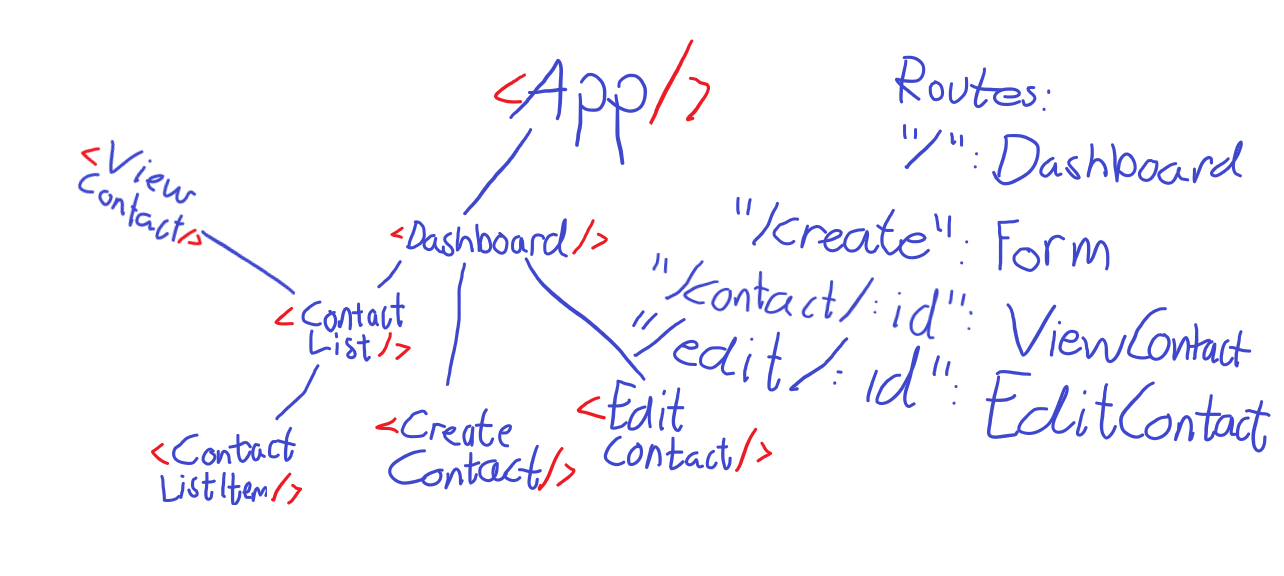 <App/>
<View
Contact/>
<Dashboard/>
<Contact
List/>
<Contact
ListItem/>
<Create
Contact/>
<Edit
Contact/>
Routes:
"/": Dashboard
"/create": Form
"/contact/:id": ViewContact
"/edit/:id": EditContact